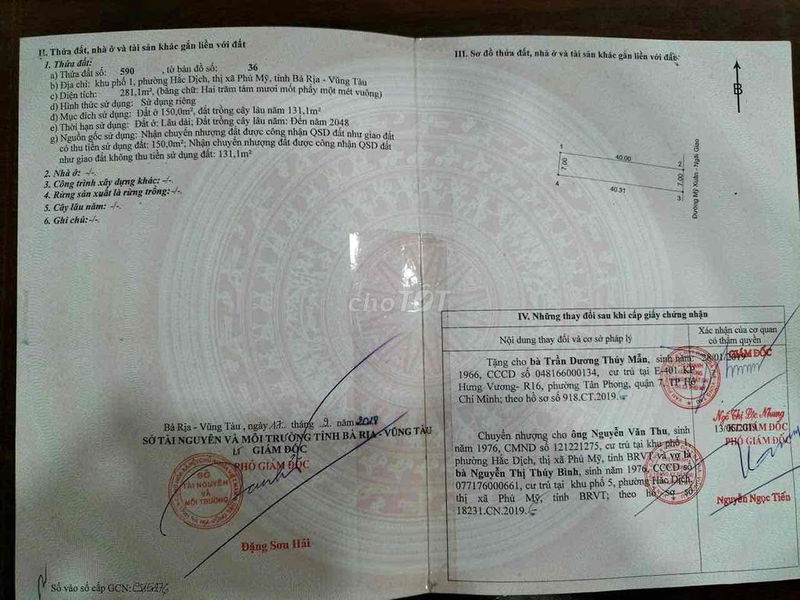 II. Thửa đất, nhà ở và tài sản khác gắn liền với đất
1. Thửa đất:
a) Thửa đất số: 590 , tờ bản đồ số: 36
b) Địa chỉ: khu phố 1, phường Hắc Dịch, thị xã Phú Mỹ, tỉnh Bà Rịa - Vũng Tàu
c) Diện tích: 281,1m², (bằng chữ: Hai trăm tám mươi mốt phẩy một mét vuông)
d) Hình thức sử dụng: Sử dụng riêng
đ) Mục đích sử dụng: Đất ở 150,0m², đất trồng cây lâu năm 131,1m²
e) Thời hạn sử dụng: Đất ở: Lâu dài; Đất trồng cây lâu năm: Đến năm 2048
g) Nguồn gốc sử dụng: Nhận chuyển nhượng đất được công nhận QSD đất như giao đất
có thu tiền sử dụng đất: 150,0m²; Nhận chuyển nhượng đất được công nhận QSD đất
như giao đất không thu tiền sử dụng đất: 131,1m²
2. Nhà ở: -/-.
3. Công trình xây dựng khác: -/-.
4. Rừng sản xuất là rừng trồng:-/-.
5. Cây lâu năm: -/-.
6. Ghi chú:-/-.
Bà Rịa - Vũng Tàu , ngày 17. tháng .9. năm 2018
SỞ TÀI NGUYÊN VÀ MÔI TRƯỜNG TỈNH BÀ RỊA - VŨNG TÀU
GIÁM ĐỐC
PHÓ GIÁM ĐỐC
SỞ
TÀI NGUYÊN
VÀ
MÔI TRƯỜNG
Đặng Sơn Hải
Số vào sổ cấp GCN:
III. Sơ đồ thửa đất, nhà ở và tài sản khác gắn liền với đất
B
1
40.00
2
7.00
7.00
4
40.31
3
Đường Mỹ Xuân - Ngãi Giao
choTỐT
IV. Những thay đổi sau khi cấp giấy chứng nhận
Nội dung thay đổi và cơ sở pháp lý
Xác nhận của cơ quan
có thẩm quyền
Tặng cho bà Trần Dương Thúy Mẫn, sinh năm:
1966, CCCD số 048166000134, cư trú tại E-401 KP
Hưng Vương- R16, phường Tân Phong, quận 7, TP Hồ
Chí Minh; theo hồ sơ số 918.CT.2019.
28/01/2019
GIÁM ĐỐC
Ngô Thị Lộc Nhung
Chuyển nhượng cho ông Nguyễn Văn Thu, sinh
năm 1976, CMND số 121221275, cư trú tại khu phố 1,
phường Hắc Dịch, thị xã Phú Mỹ, tỉnh BRVT và vợ là
bà Nguyễn Thị Thúy Bình, sinh năm 1976, CCCD số
077176000661, cư trú tại khu phố 5, phường Hắc Dịch,
thị xã Phú Mỹ, tỉnh BRVT; theo hồ sơ số
18231.CN.2019.
GIÁM ĐỐC
PHÓ GIÁM ĐỐC
Nguyễn Ngọc Tiến